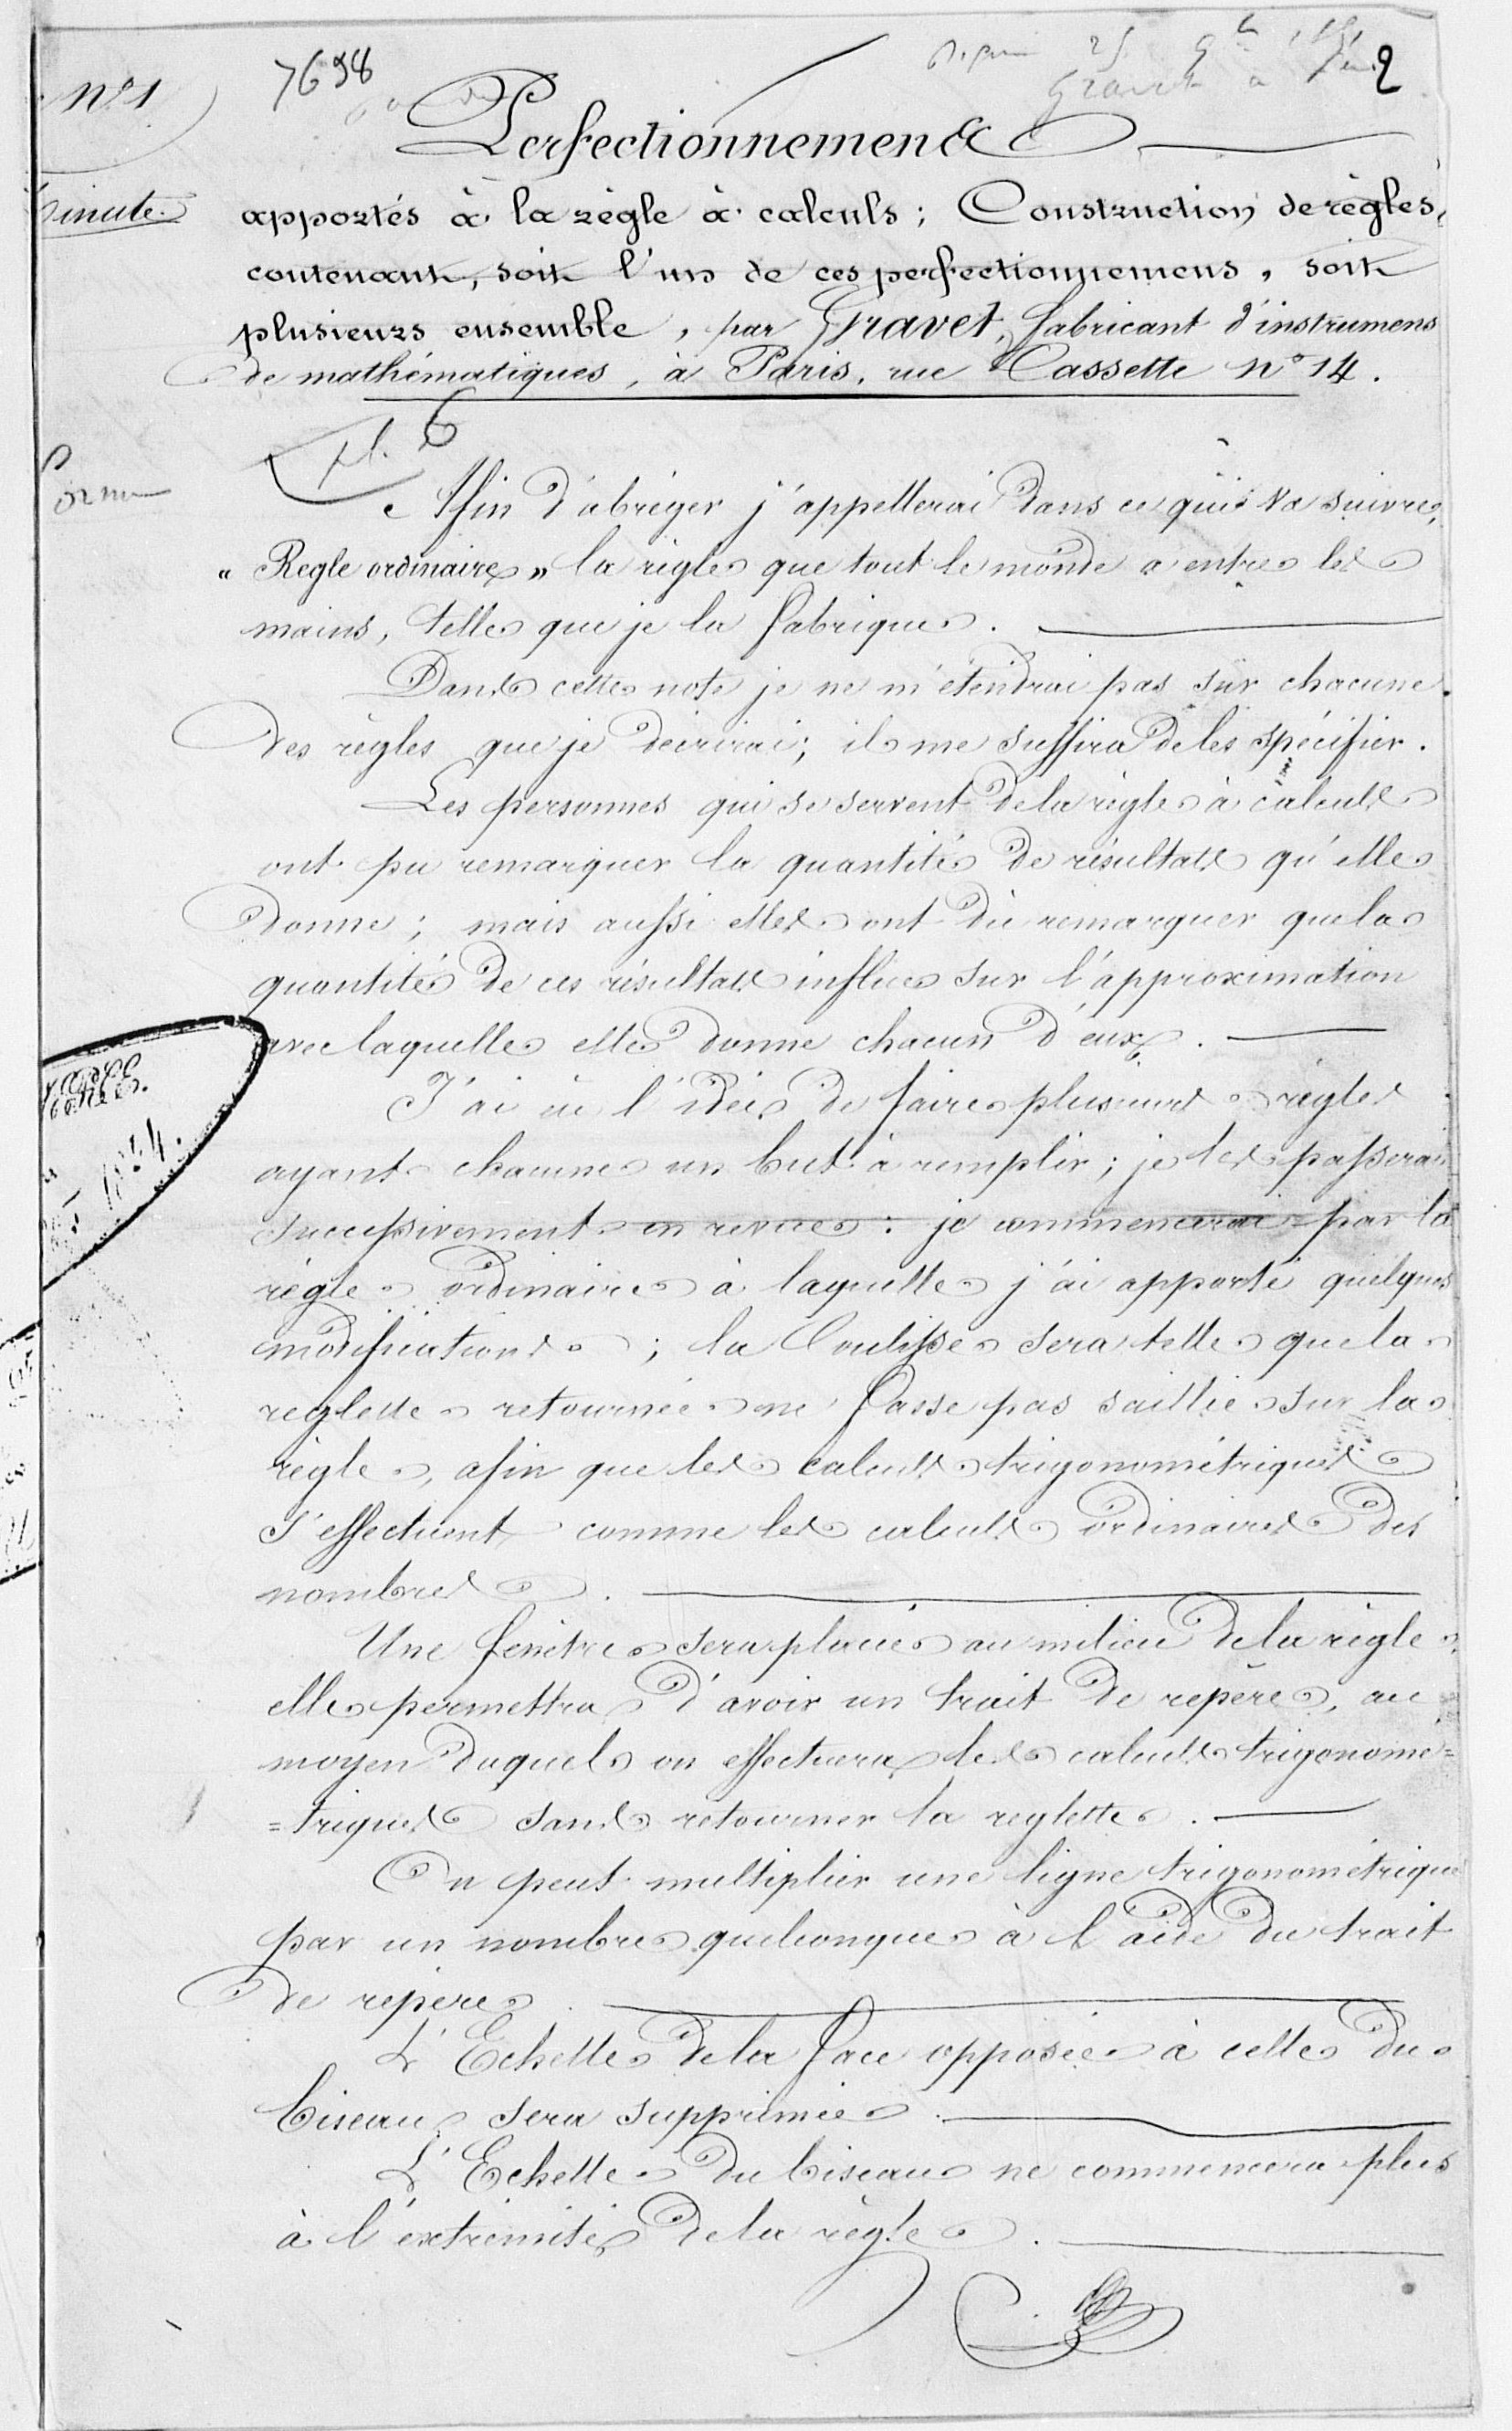 nº 1
7698
2
Perfectionnements
apportés à la règle à calculs ; Construction de règles,
contenant, soit l'un de ces perfectionnemens, soit
plusieurs ensemble, par Gravet, fabricant d'instrumens
de mathématiques, à Paris, rue Cassette nº 14.
Afin d'abréger j'appellerai dans ce qui va suivre,
" Regle ordinaire " la règle que tout le monde a entre les
mains, telle que je la fabrique.
Dans cette note je ne m'étendrai pas sur chacune
des règles que je décrirai ; il me suffira de les spécifier.
Les personnes qui se servent de la règle à calculs
ont pu remarquer la quantité de résultats qu'elle
donne ; mais aussi elles ont dû remarquer que la
quantité de ces résultats influe sur l'approximation
avec laquelle elle donne chacun d'eux.
J'ai eu l'idée de faire plusieurs règles
ayant chacune un but à remplir ; je les passerai
successivement en revue : je commencerai par la
règle ordinaire à laquelle j'ai apporté quelques
modifications ; la Coulisse sera telle que la
reglette retournée ne fasse pas saillie sur la
règle, afin que les calculs trigonométriques
s'effectuent comme les calculs ordinaires des
nombres.
Une fenêtre sera placée au milieu de la règle,
elle permettra d'avoir un trait de repère, au
moyen duquel on effectuera les calculs trigonomé=
=triques sans retourner la reglette.
On peut multiplier une ligne trigonométrique
par un nombre quelconque à l'aide du trait
de repère.
L'Echelle de la face opposée à celle du
biseau sera supprimée.
L'Echelle du biseau ne commencera plus
à l'extrémité de la règle.